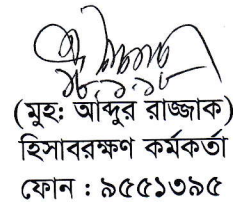 (মুহঃ আব্দুর রাজ্জাক)
হিসাবরক্ষণ কর্মকর্তা
ফোন : ৯৫৫১৩৯৫